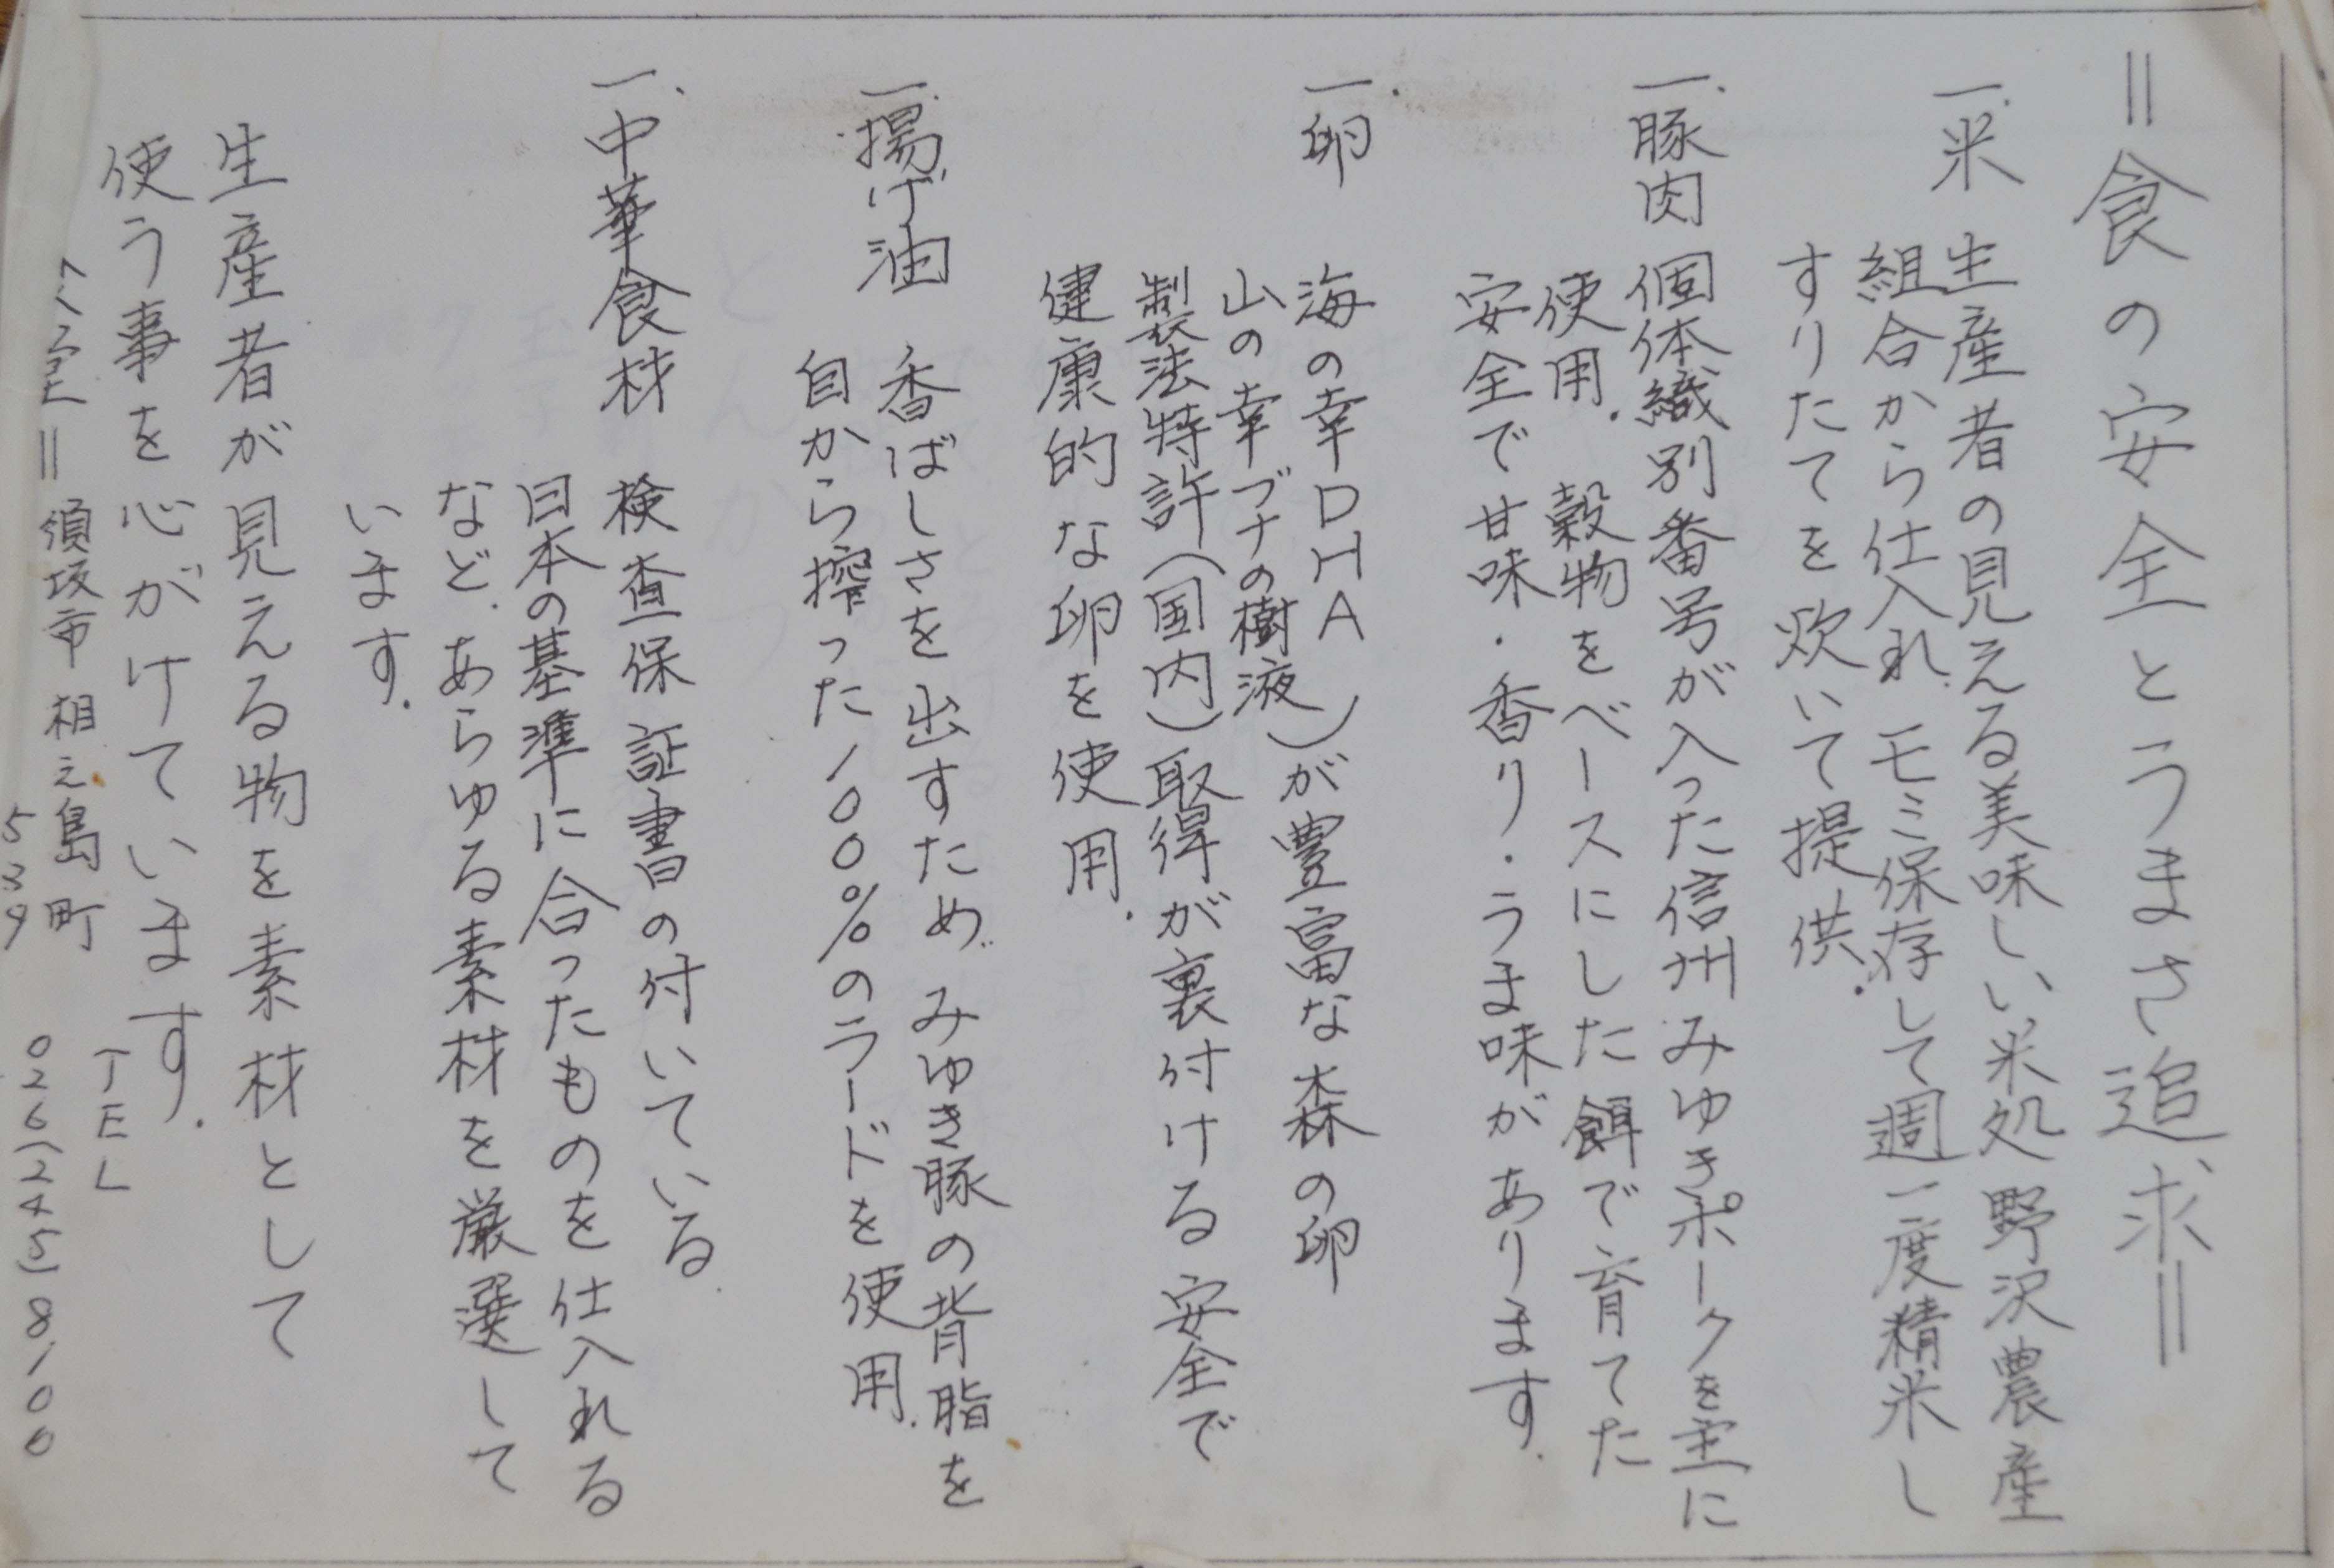 =食の安全とうまさ追求=
一.米 生産者の見える美味しい米処野沢農産
組合から仕入れ.モミ保存して週一度精米し
すりたてを炊いて提供.
一.豚肉 個体織別番号が入った信州みゆきポークを主に
使用. 穀物をベースにした餌で育てた
安全で甘味・香り・うま味があります.
一.卵 海の幸DHA
山の幸ブナの樹液)が豊富な森の卵
製法特許(国内)取得が裏付ける安全で
健康的な卵を使用.
一.揚げ油 香ばしさを出すため.みゆき豚の背脂を
自から搾った100%のラードを使用.
一.中華食材 検査保証書の付いている.
日本の基準に合ったものを仕入れる
など.あらゆる素材を厳選して
います.
生産者が見える物を素材として
使う事を心がけています.
= 須坂市相之島町
539
TEL
026(245)8100